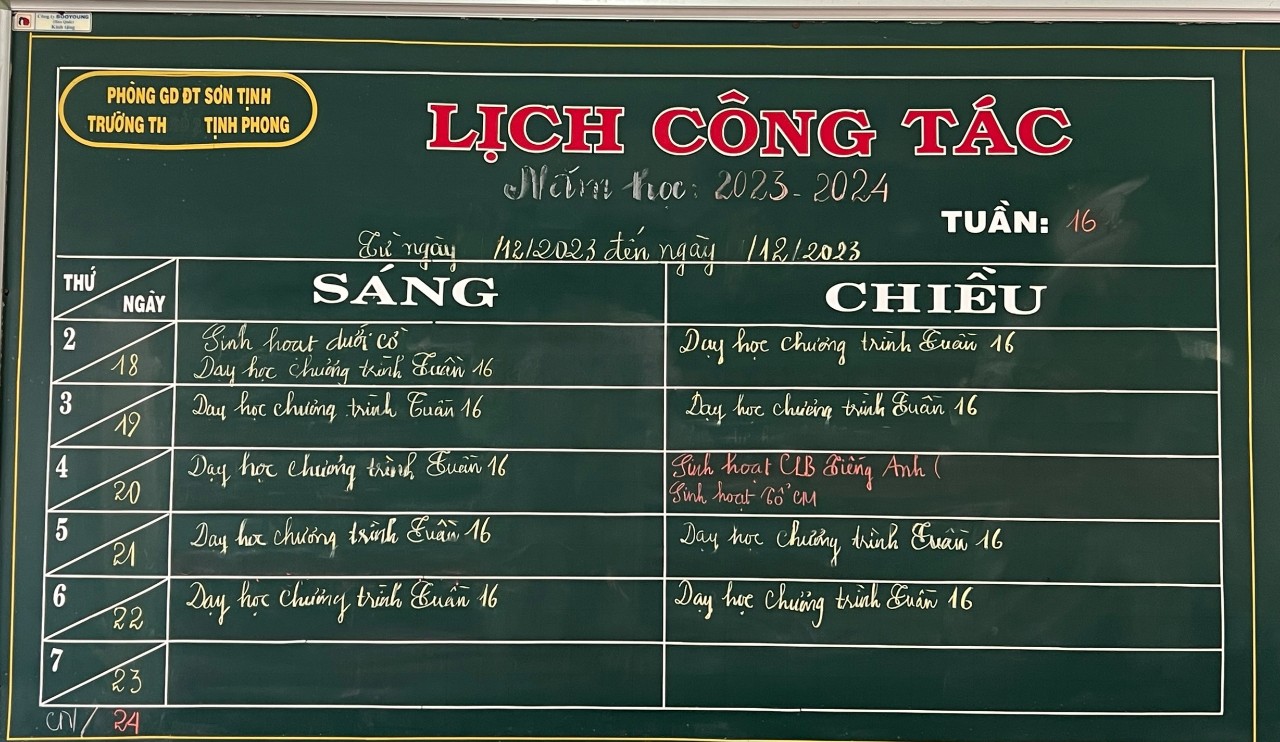 Công ty BOOYOUNG
Hàn Quốc
Kính tặng
PHÒNG GD ĐT SƠN TỊNH
TRƯỜNG TH TỊNH PHONG
LỊCH CÔNG TÁC
Năm học: 2023-2024
TUẦN: 16
Từ ngày /12/2023 đến ngày /12/2023
THỨ NGÀY SÁNG CHIỀU
2 18
Sinh hoạt dưới cờ
Dạy học chương trình Tuần 16
Dạy học chương trình Tuần 16
3 19
Dạy học chương trình Tuần 16
Dạy học chương trình Tuần 16
4 20
Dạy học chương trình Tuần 16
Sinh hoạt CLB Tiếng Anh (
Sinh hoạt Tổ CM
5 21
Dạy học chương trình Tuần 16
Dạy học chương trình Tuần 16
6 22
Dạy học chương trình Tuần 16
Dạy học chương trình Tuần 16
7 23
CN/ 24